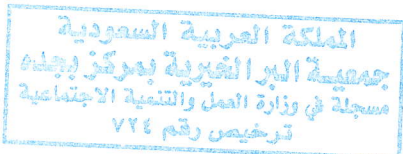 المملكة العربية السعودية
جمعية البر الخيرية بمركز بجده
مسجلة في وزارة العمل والتنمية الاجتماعية
ترخيص رقم ٧٢٤